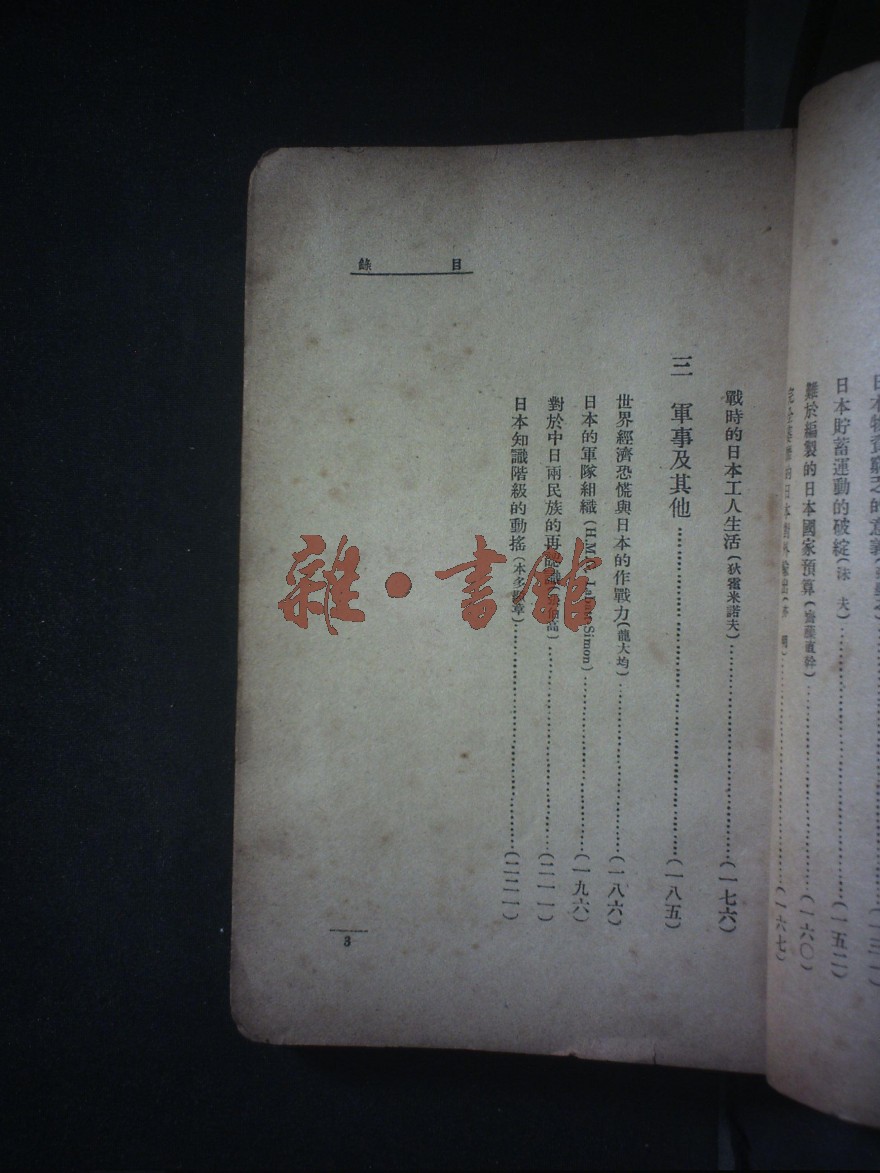 日本貯蓄運動的破綻 夫)(一五二)
難於編製的日本國家預算(一六〇)
的日本 出(一六七)
目錄
戰時的日本工人生活(狄霍米諾夫)(一七六)
三 軍事及其他(一八五)
世界經濟恐慌與日本的作戰力(龍大均)(一八六)
日本的軍隊組織(H.M. Simon)(一九六)
對於中日兩民族的再認識(二一一)
日本知識階級的動搖(本多顯章)(二二一)
3
雜·書館